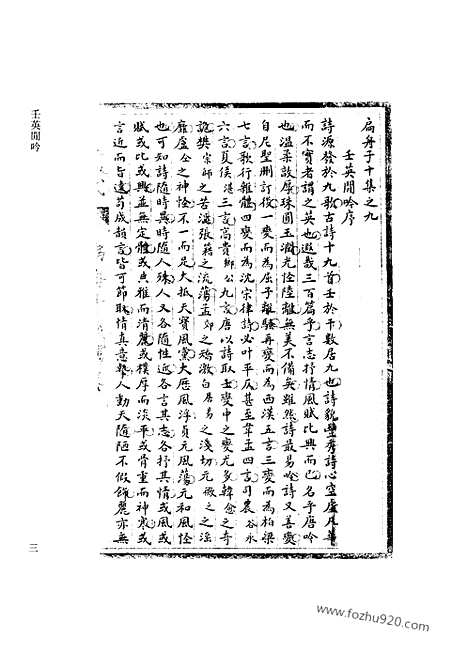 扁舟子十集之九
壬英閒吟序
詩源發於九歌古詩十九首壬於干數居九也詩貌豐秀詩心空虛凡華
而不實者謂之英也遐哉三百篇乎言志抒情風賦比興而已名乎唐吟
也溫柔敦厚珠圓玉潤光怪陸離無美不備矣雖然詩最易吟詩又善變
自尼聖刪訂後一變而為屈子離騷再變而為西漢五言三變而為柏梁
七言歌行雜體四變而為沈宋律詩必叶平仄甚至韋孟四言司農谷永
六言夏侯湛三言高貴鄉公九言唐以詩取士變中之變尤多韓愈之奇
詭樊宗師之苦澀張籍之流蕩孟郊之矯激白居易之淺切元微之之淫
靡盧仝之神怪不一而足大抵天寶風黨大歷風浮貞元風蕩元和風怪
也可知詩隨時異時隨人殊人又各隨性近各言其志各抒其情或風或
賦或比或興並無定體或典雅而清麗或樸厚而淡平或骨重而神寒或
言近而旨遠苟成韻言皆可節取情真意摯人動天隨陋不假錦麗亦無
壬英閒吟
三
www.fozhu920.com